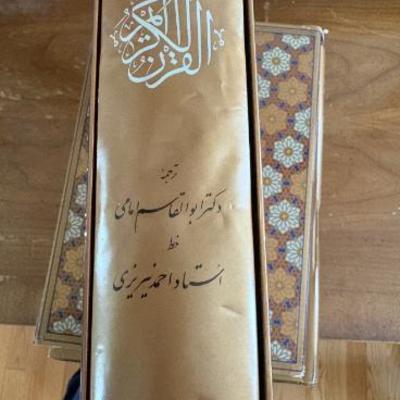 القرآن الكريم
ترجمهٔ
دکتر ابوالقاسم امامی
خط
استاد احمد نیریزی